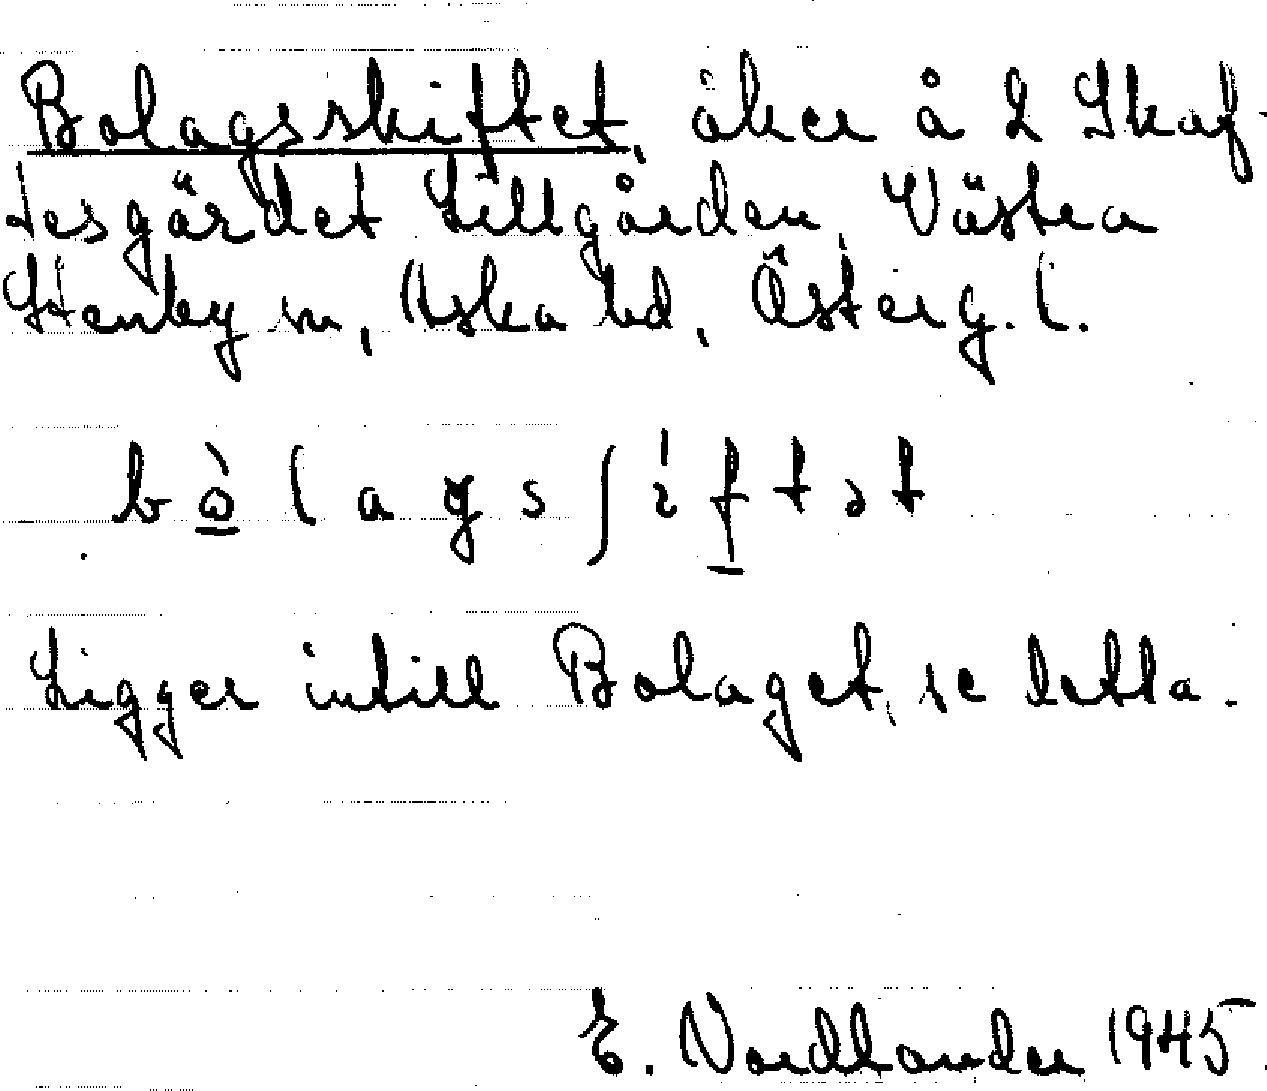 Bolagsskiftet, åker å 2 Skaf-
tesgärdet Lillgården, Västra
Stenby sn, Aska hd, Österg. l.
bòlagsʃíftət
Ligger intill Bolaget, se detta.
E. Nordlander 1945.